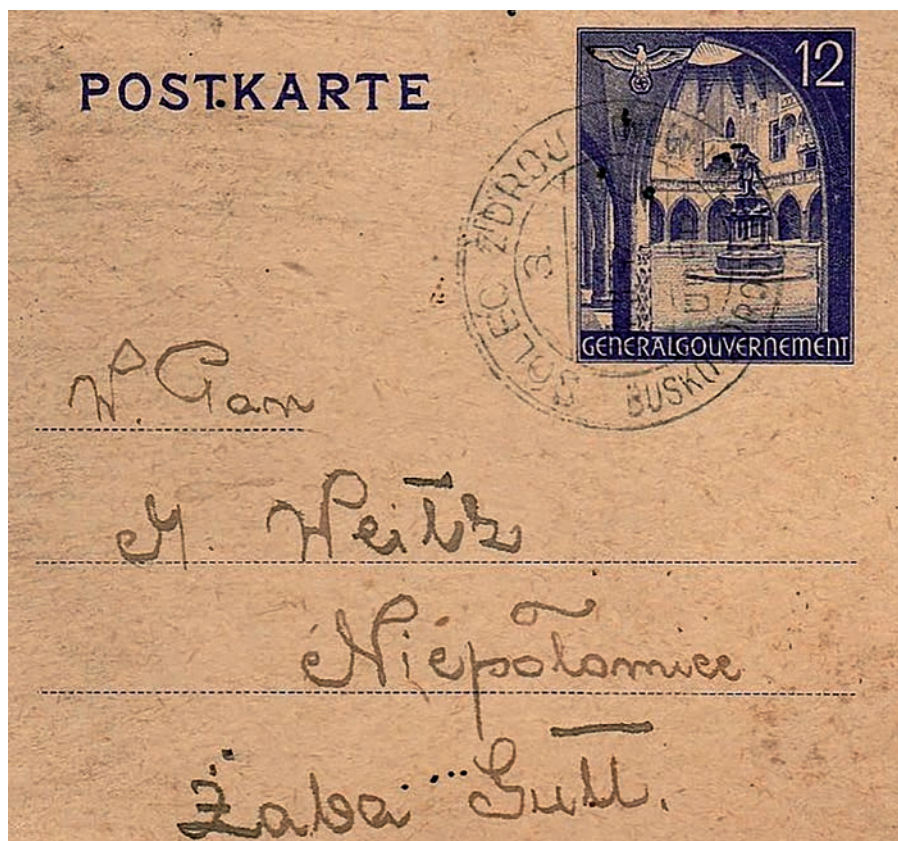 POSTKARTE
12
GENERALGOUVERNEMENT
SOLEC ZDRÓJ
BUSKO
3.
W. Pan
M. Weitz
Niepołomice
Żaba Gutt.